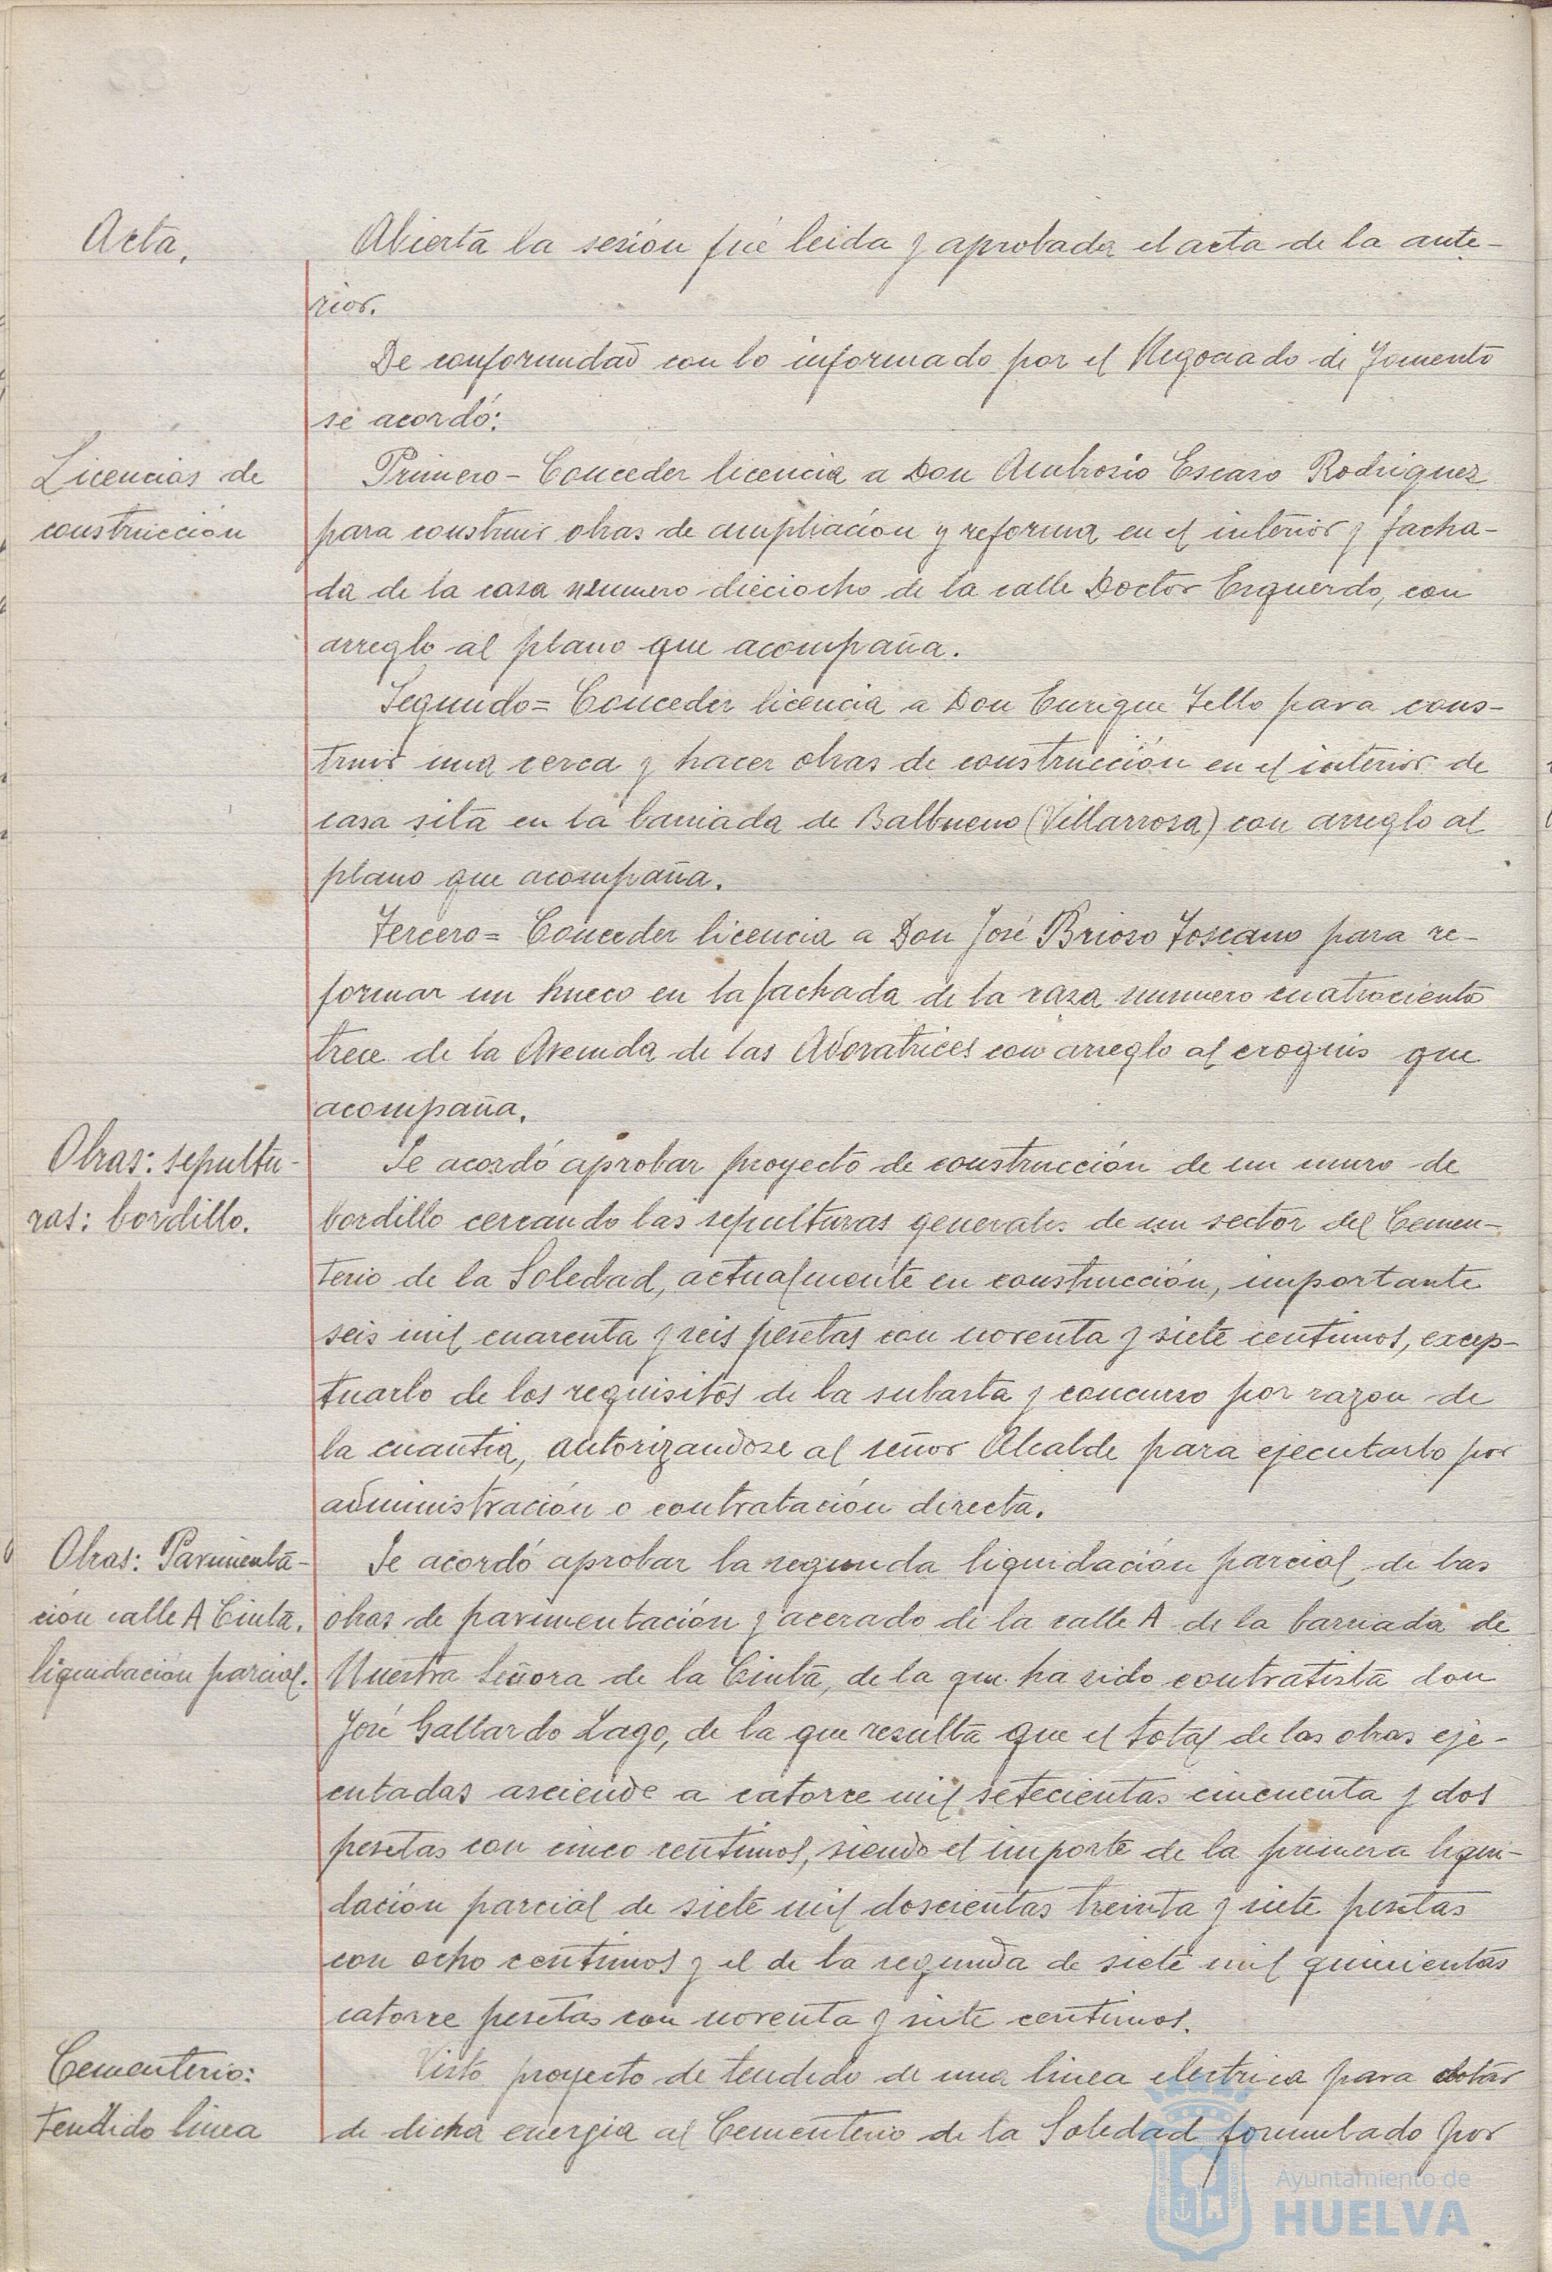 Acta.
Abierta la sesión fué leida y aprobada el acta de la ante-
rior.
De conformidad con lo informado por el Negociado de Fomento
se acordó:
Licencias de
construcción
Primero - Conceder licencia a Don Ambrosio Escaso Rodriguez
para construir obras de ampliación y reforma en el interior y facha-
da de la casa numero dieciocho de la calle Doctor Esquerdo, con
arreglo al plano que acompaña.
Segundo = Conceder licencia a Don Enrique Tello para cons-
truir una cerca y hacer obras de construcción en el interior de
casa sita en la barriada de Balbueno (Villarrosa) con arreglo al
plano que acompaña.
Tercero = Conceder licencia a Don José Brioso Toscano para re-
formar un hueco en la fachada de la casa numero cuatrociento
trece de la Avenida de las Adoratrices con arreglo al croquis que
acompaña.
Obras: sepultu-
ras: bordillo.
Se acordó aprobar proyecto de construcción de un muro de
bordillo cercando las sepulturas generales de un sector del Cemen-
terio de la Soledad, actualmente en construcción, importante
seis mil cuarenta y seis pesetas con noventa y siete centimos, excep-
tuarlo de los requisitos de la subasta y concurso por razon de
la cuantia, autorizandose al señor Alcalde para ejecutarlo por
administración o contratación directa.
Obras: Pavimenta-
ción calle A Cinta.
liquidación parcial.
Se acordó aprobar la segunda liquidación parcial de las
obras de pavimentación y acerado de la calle A de la barriada de
Nuestra Señora de la Cinta, de la que ha sido contratista don
José Gallardo Lago, de la que resulta que el total de las obras eje-
cutadas asciende a catorce mil setecientas cincuenta y dos
pesetas con cinco centimos, siendo el importe de la primera liqui-
dación parcial de siete mil doscientas treinta y siete pesetas
con ocho centimos y el de la segunda de siete mil quinientas
catorce pesetas con noventa y siete centimos.
Cementerio:
tendido linea
Visto proyecto de tendido de una linea electrica para dotar
de dicha energia al Cementerio de la Soledad formulado por
Ayuntamiento de
HUELVA